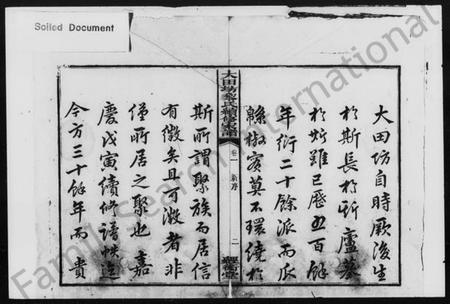 Soiled Document
大田坊自時厥後生
於斯長於斯廬墓
於斯雖已歷五百餘
年衍二十餘派而瓜
綿椒實莫不環繞於
大田坊黎氏續修支譜
卷一
二
斯所謂聚族而居信
有徵矣且可徵者非
僅所居之聚也嘉
慶戊寅續修譜帙迄
今方三十餘年而貴
FamilySearch International